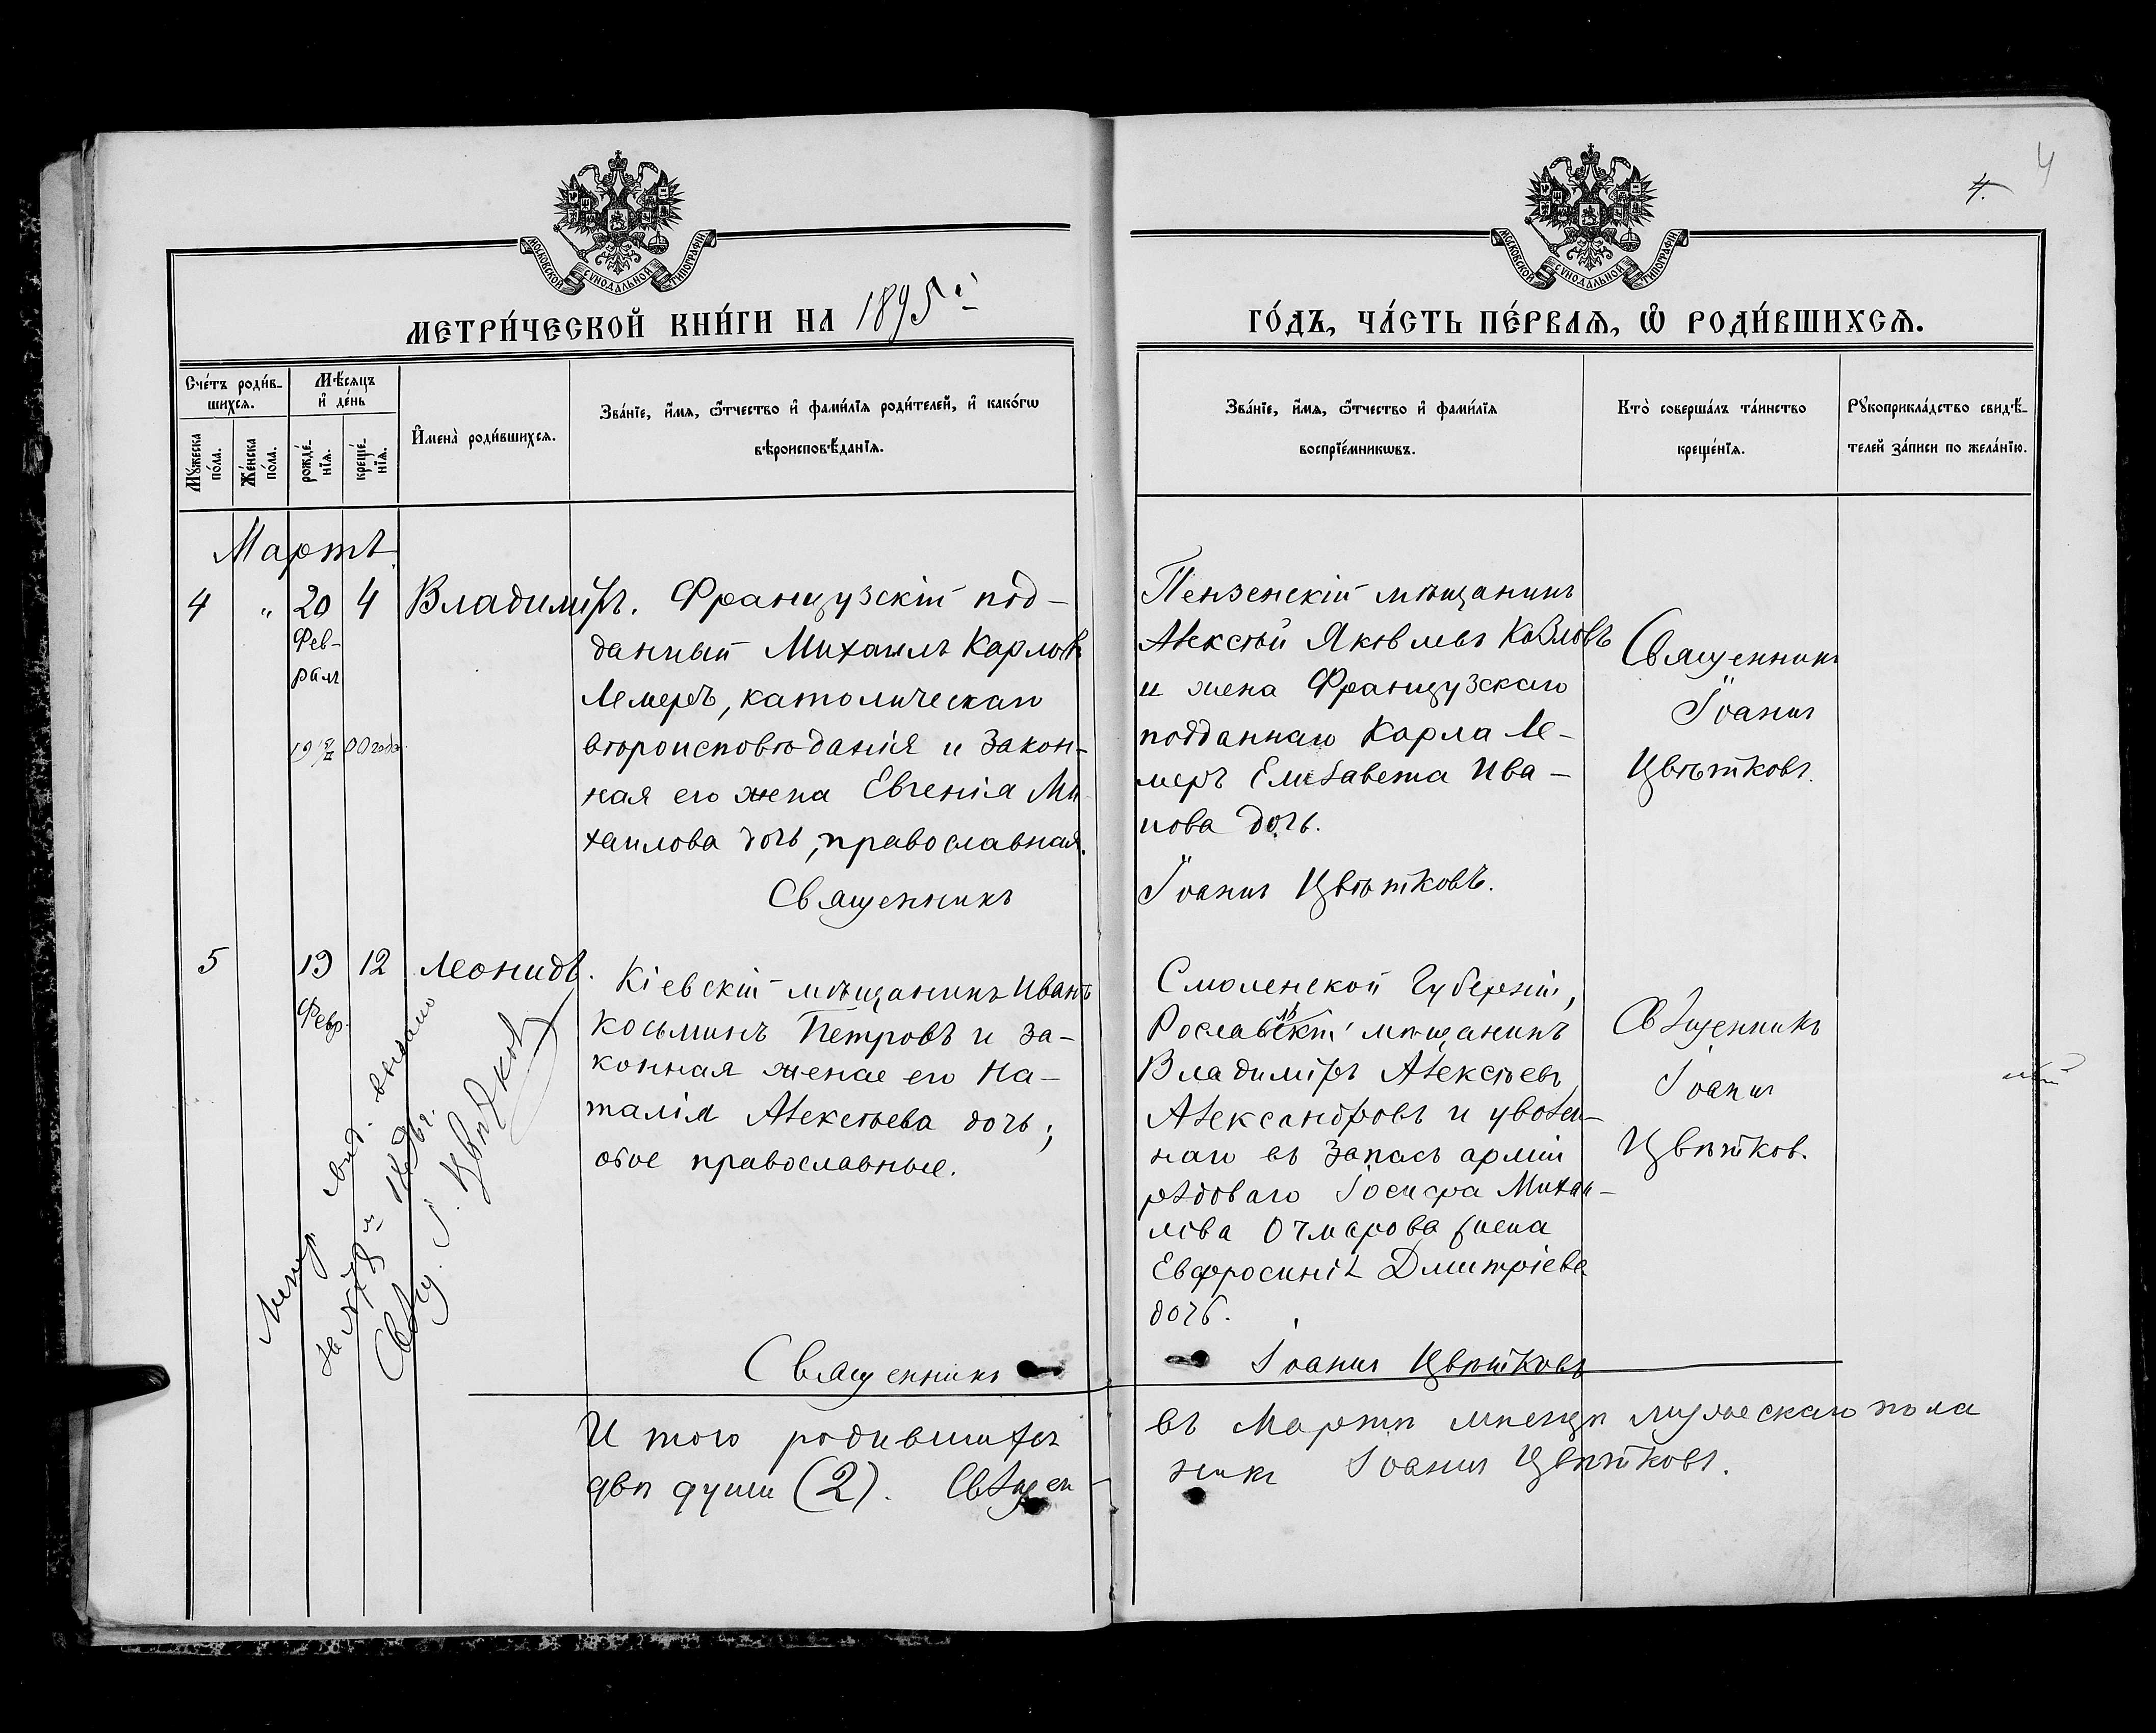 4
4.
МОСКОВСКОЙ СѴНОДАЛЬНОЙ ТИПОГРАФІИ
МОСКОВСКОЙ СѴНОДАЛЬНОЙ ТИПОГРАФІИ
МЕТРИ́ЧЕСКОЙ КНИ́ГИ НА 1895й
ГО́ДЪ, ЧА́СТЬ ПЕ́РВАѦ, Ѡ РОДИ́ВШИХСѦ.
Сче́тъ роди́в-
шихсѧ.
Мꙋжеска
по́ла.
Же́нска
по́ла.
Мѣ́сѧцъ
и҆ де́нь
рожде́-
нїѧ.
креще́-
нїѧ.
И҆мена̀ роди́вшихсѧ.
Зва́нїе, и҆́мѧ, ѻ҆́тчество и҆ фами́лїѧ роди́телей, и҆ како́гѡ
вѣроисповѣ́данїѧ.
Зва́нїе, и҆́мѧ, ѻ҆́тчество и҆ фами́лїѧ
воспрїе́мникѡвъ.
Кто̀ соверша́лъ та́инство
креще́нїѧ.
Рꙋкоприкла́дство свидѣ́-
телей за́писи по жела́нїю.
Мартъ
4 " 20 4 Владиміръ.
Фев-
раля
19 00 года.
Французскій под-
данный Михаилъ Карловъ
Лемеръ, католическаго
вѣроисповѣданія и закон-
ная его жена Евгенія Ми-
хаилова дочь, православная.
Священникъ
Пензенскій мѣщанинъ
Алексѣй Яковлевъ Козловъ
и жена Французскаго
подданнаго Карла Ле-
меръ Елизавета Ива-
нова дочь.
Іоаннъ Цвѣтковъ.
Священникъ
Іоаннъ
Цвѣтковъ.
5 19 12 Леонидъ.
Февр.
Кіевскій мѣщанинъ Иванъ
Косьминъ Петровъ и за-
конная женае его На-
талія Алексѣева дочь;
обое православные.
Священникъ
Смоленской Губерніи,
Рославльскій мѣщанинъ
Владиміръ Алексѣевъ
Александровъ и уволен-
наго въ запасъ арміи
рядоваго Іосифа Михаи-
лова Очмарова жена
Евфросинія Дмитріева
дочь.
Іоаннъ Цвѣтковъ
Священникъ
Іоаннъ
Цвѣтков.
Метр. свид. выдано
за № 8м 1896 г.
Свящ. І. Цвѣтковъ
И того родившихся
двѣ души (2). Священ-
въ Мартѣ мѣсяцѣ мужескаго пола
никъ Іоаннъ Цвѣтковъ.